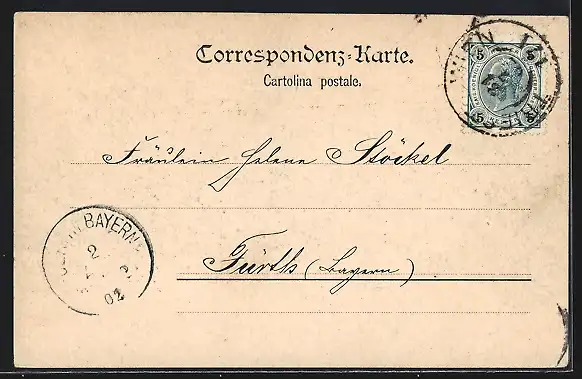 Correspondenz-Karte.
Cartolina postale.
5 5
5 5
WIEN 1/1
Fräulein Helene Stöckel
Fürth (Bayern)
BAYERN
2
02